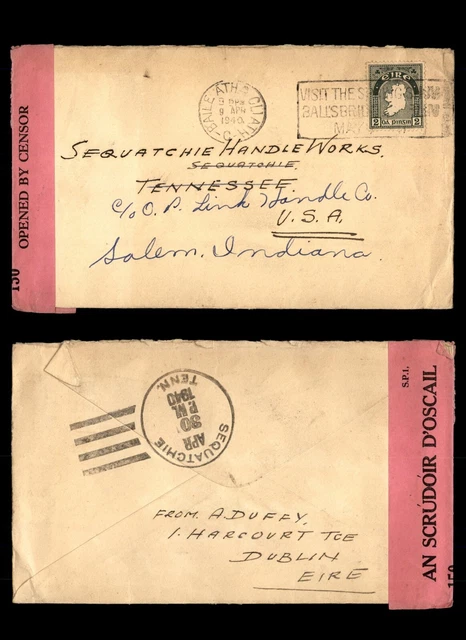 OPENED BY CENSOR
150
BAILE ÁTHA CLIATH
9 APR
1940
VISIT THE
BALLSBRI
MAY
EIRE
2 DÁ PINGIN 2
SEQUATCHIE HANDLE WORKS.
SEQUATCHIE.
TENNESSEE.
C/o O. P. Link Handle Co.
U.S.A.
Salem. Indiana.
SEQUATCHIE
TENN.
APR
30
P M
1940
FROM. A DUFFY,
1. HARCOURT TCE
DUBLIN
EIRE
S.P.1.
AN SCRÚDÓIR D'OSCAIL
150